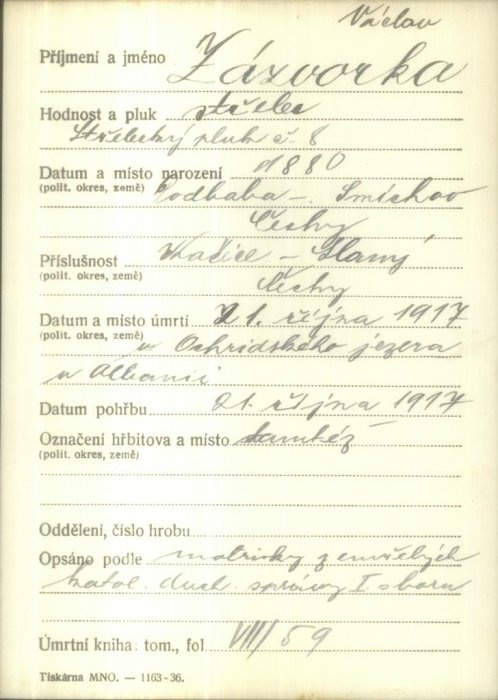 Václav
Příjmení a jméno Zázvorka
Hodnost a pluk střelec
Střelecký pluk č. 8
Datum a místo narození 1880
(polit. okres, země) Podbaba - Smíchov
Čechy
Příslušnost Kačice - Slaný
(polit. okres, země) Čechy
Datum a místo úmrtí 21. října 1917
(polit. okres, země) u Ochridského jezera
v Albanii
Datum pohřbu 21. října 1917
Označení hřbitova a místo tamtéž
(polit. okres, země)
Oddělení, číslo hrobu
Opsáno podle matriky zemřelých
katol. duch. správy I sboru
Úmrtní kniha: tom., fol VIII/59
Tiskárna MNO. — 1163-36.